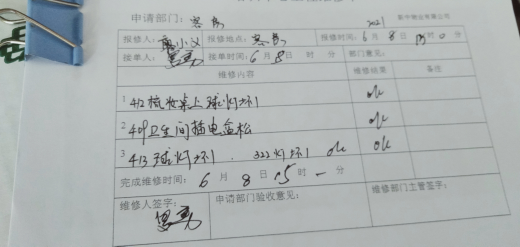 申请部门: 客房
2021
报修人: 小 报修地点: 客房 报修时间: 6月8日 时0分
接单人: 接单时间: 6月8日 时 分 部门意见:
维修内容 维修结果 备注
1 412梳妆桌上球灯坏 ok
2 409卫生间插电盒松 ok
3 413球灯坏. 322灯坏 ok ok
完成维修时间: 6月8日15时一分
维修人签字: 申请部门验收意见: 维修部门主管签字: